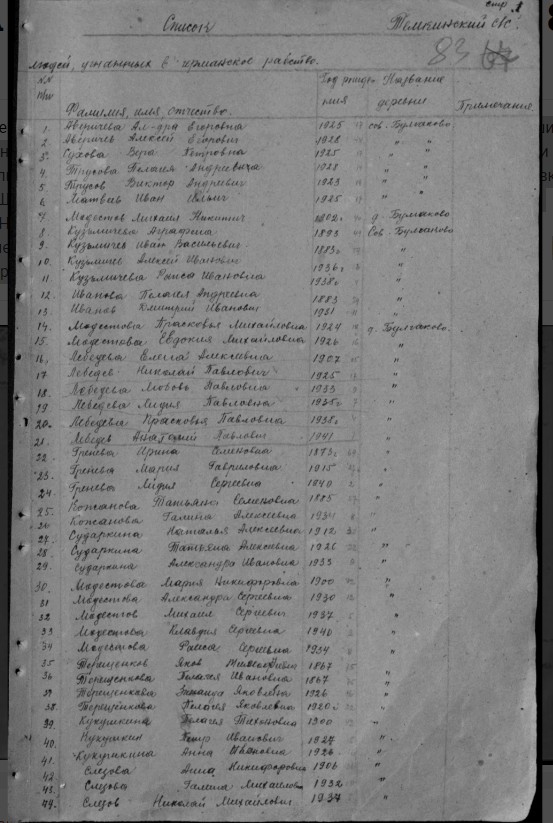 стр. 1
Список Темкинский с/с.
83
людей, угнанных в германское рабство.
NN п/п Фамилия, имя, отчество. Год рождения Название деревни Примечания
1. Аверичева Ал-дра Егоровна 1925 сов. Булгаково
2. Аверичев Алексей Егорович 1928 " "
3. Сухова Вера Петровна 1925 " "
4. Трусова Пелагея Андреевна 1928 " "
5. Трусов Виктор Андреевич 1923 " "
6. Матвеев Иван Ильич 1925 "
7. Модестов Михаил Никитич 1902. д. Булгаково
8. Кузьмичева Аграфена 1893 Сов. Булгаково
9. Кузьмичев Иван Васильевич 1883. "
10. Кузьмичев Алексей Иванович 1936г "
11. Кузьмичева Раиса Ивановна 1938г "
12. Иванова Пелагея Андреевна 1883 "
13. Иванов Дмитрий Иванович 1931 "
14. Модестова Прасковья Михайловна 1924 д. Булгаково.
15. Модестовa Евдокия Михайловна 1926 "
16. Лебедева Елена Алексеевна 1907 "
17. Лебедев Николай Павлович 1925 "
18. Лебедева Любовь Павловна 1933 "
19 Лебедева Лидия Павловна 1935г "
20. Лебедева Прасковья Павловна 1938г "
21. Лебедев Анатолий Павлович 1941 "
22. Гренева Ирина Семеновна 1873г. "
23. Гренева Мария Гавриловна 1915 "
24. Гренева Лидия Сергеевна 1940 "
25. Кожанова Татьяна Семеновна 1885 "
26. Кожанова Галина Алексеевна 1934 "
27. Сударкина Наталья Алексеевна 1912 "
28. Сударкина Татьяна Алексеевна 1926 "
29. Сударкина Александра Ивановна 1933 "
30. Модестова Мария Никифоровна 1900 "
31 Модестова Александра Сергеевна 1930 "
32 Модестов Михаил Сергеевич 1937 "
33 Модестова Клавдия Сергеевна 1940 "
34 Модестова Раиса Сергеевна 1934 "
35 Терещенков Яков 1867 "
36 Терещенкова Пелагея Ивановна 1867 "
37 Терещенкова Зинаида Яковлевна 1926 "
38. Терещенкова Пелагея Яковлевна 1920г "
39. Кукушкина Пелагея Тихоновна 1900 "
40. Кукушкин Петр Иванович 1927 "
41. Кукушкина Анна Ивановна 1926 "
42. Слезова Анна Никифоровна 1906 "
43. Слезова Галина Михайловн 1932 "
44. Слезов Николай Михайлович 1937 "